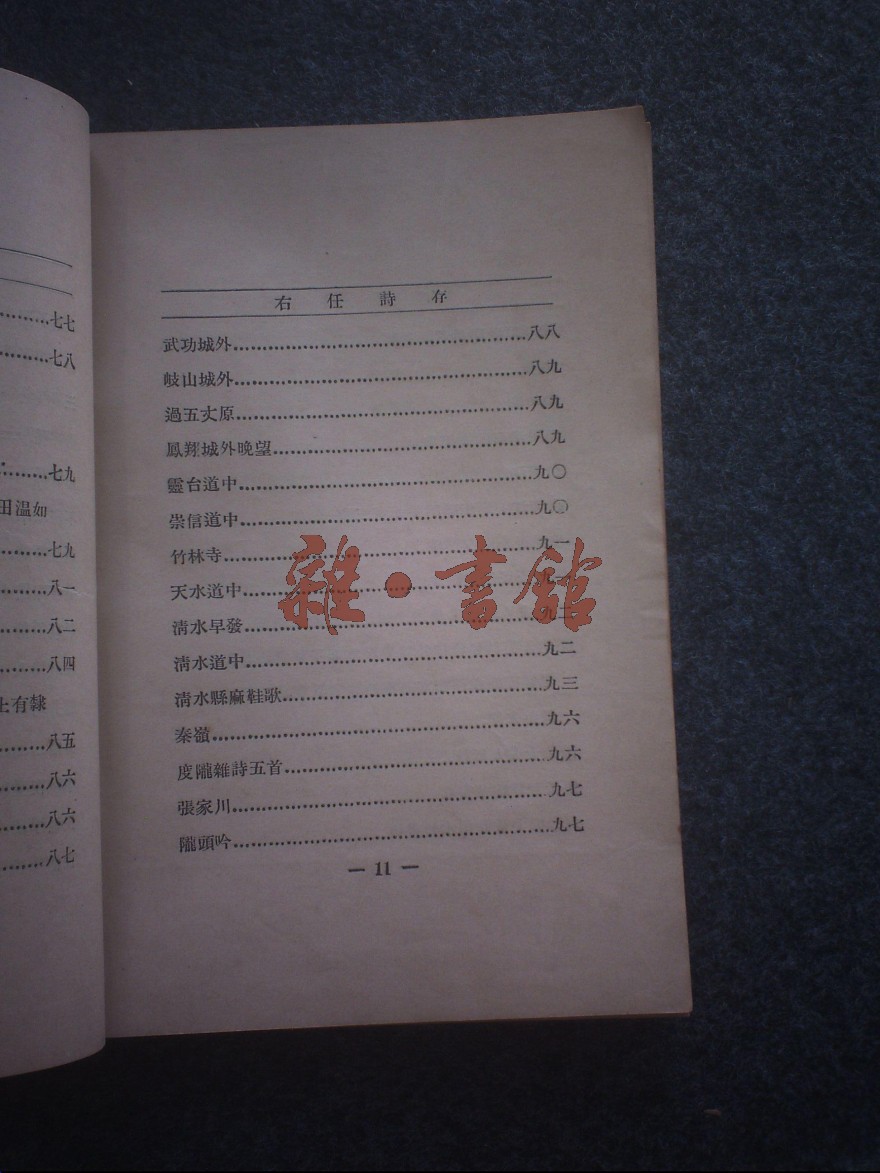 七七
七八
七九
田温如
七九
八一
八二
八四
上有隸
八五
八六
八六
八七
右任詩存
武功城外……八八
岐山城外……八九
過五丈原……八九
鳳翔城外晚望……八九
靈台道中……九〇
崇信道中……九〇
竹林寺……九一
天水道中……
清水早發……九二
清水道中……九二
清水縣麻鞋歌……九三
秦嶺……九六
度隴雜詩五首……九六
張家川……九七
隴頭吟……九七
— 11 —
雜·書館